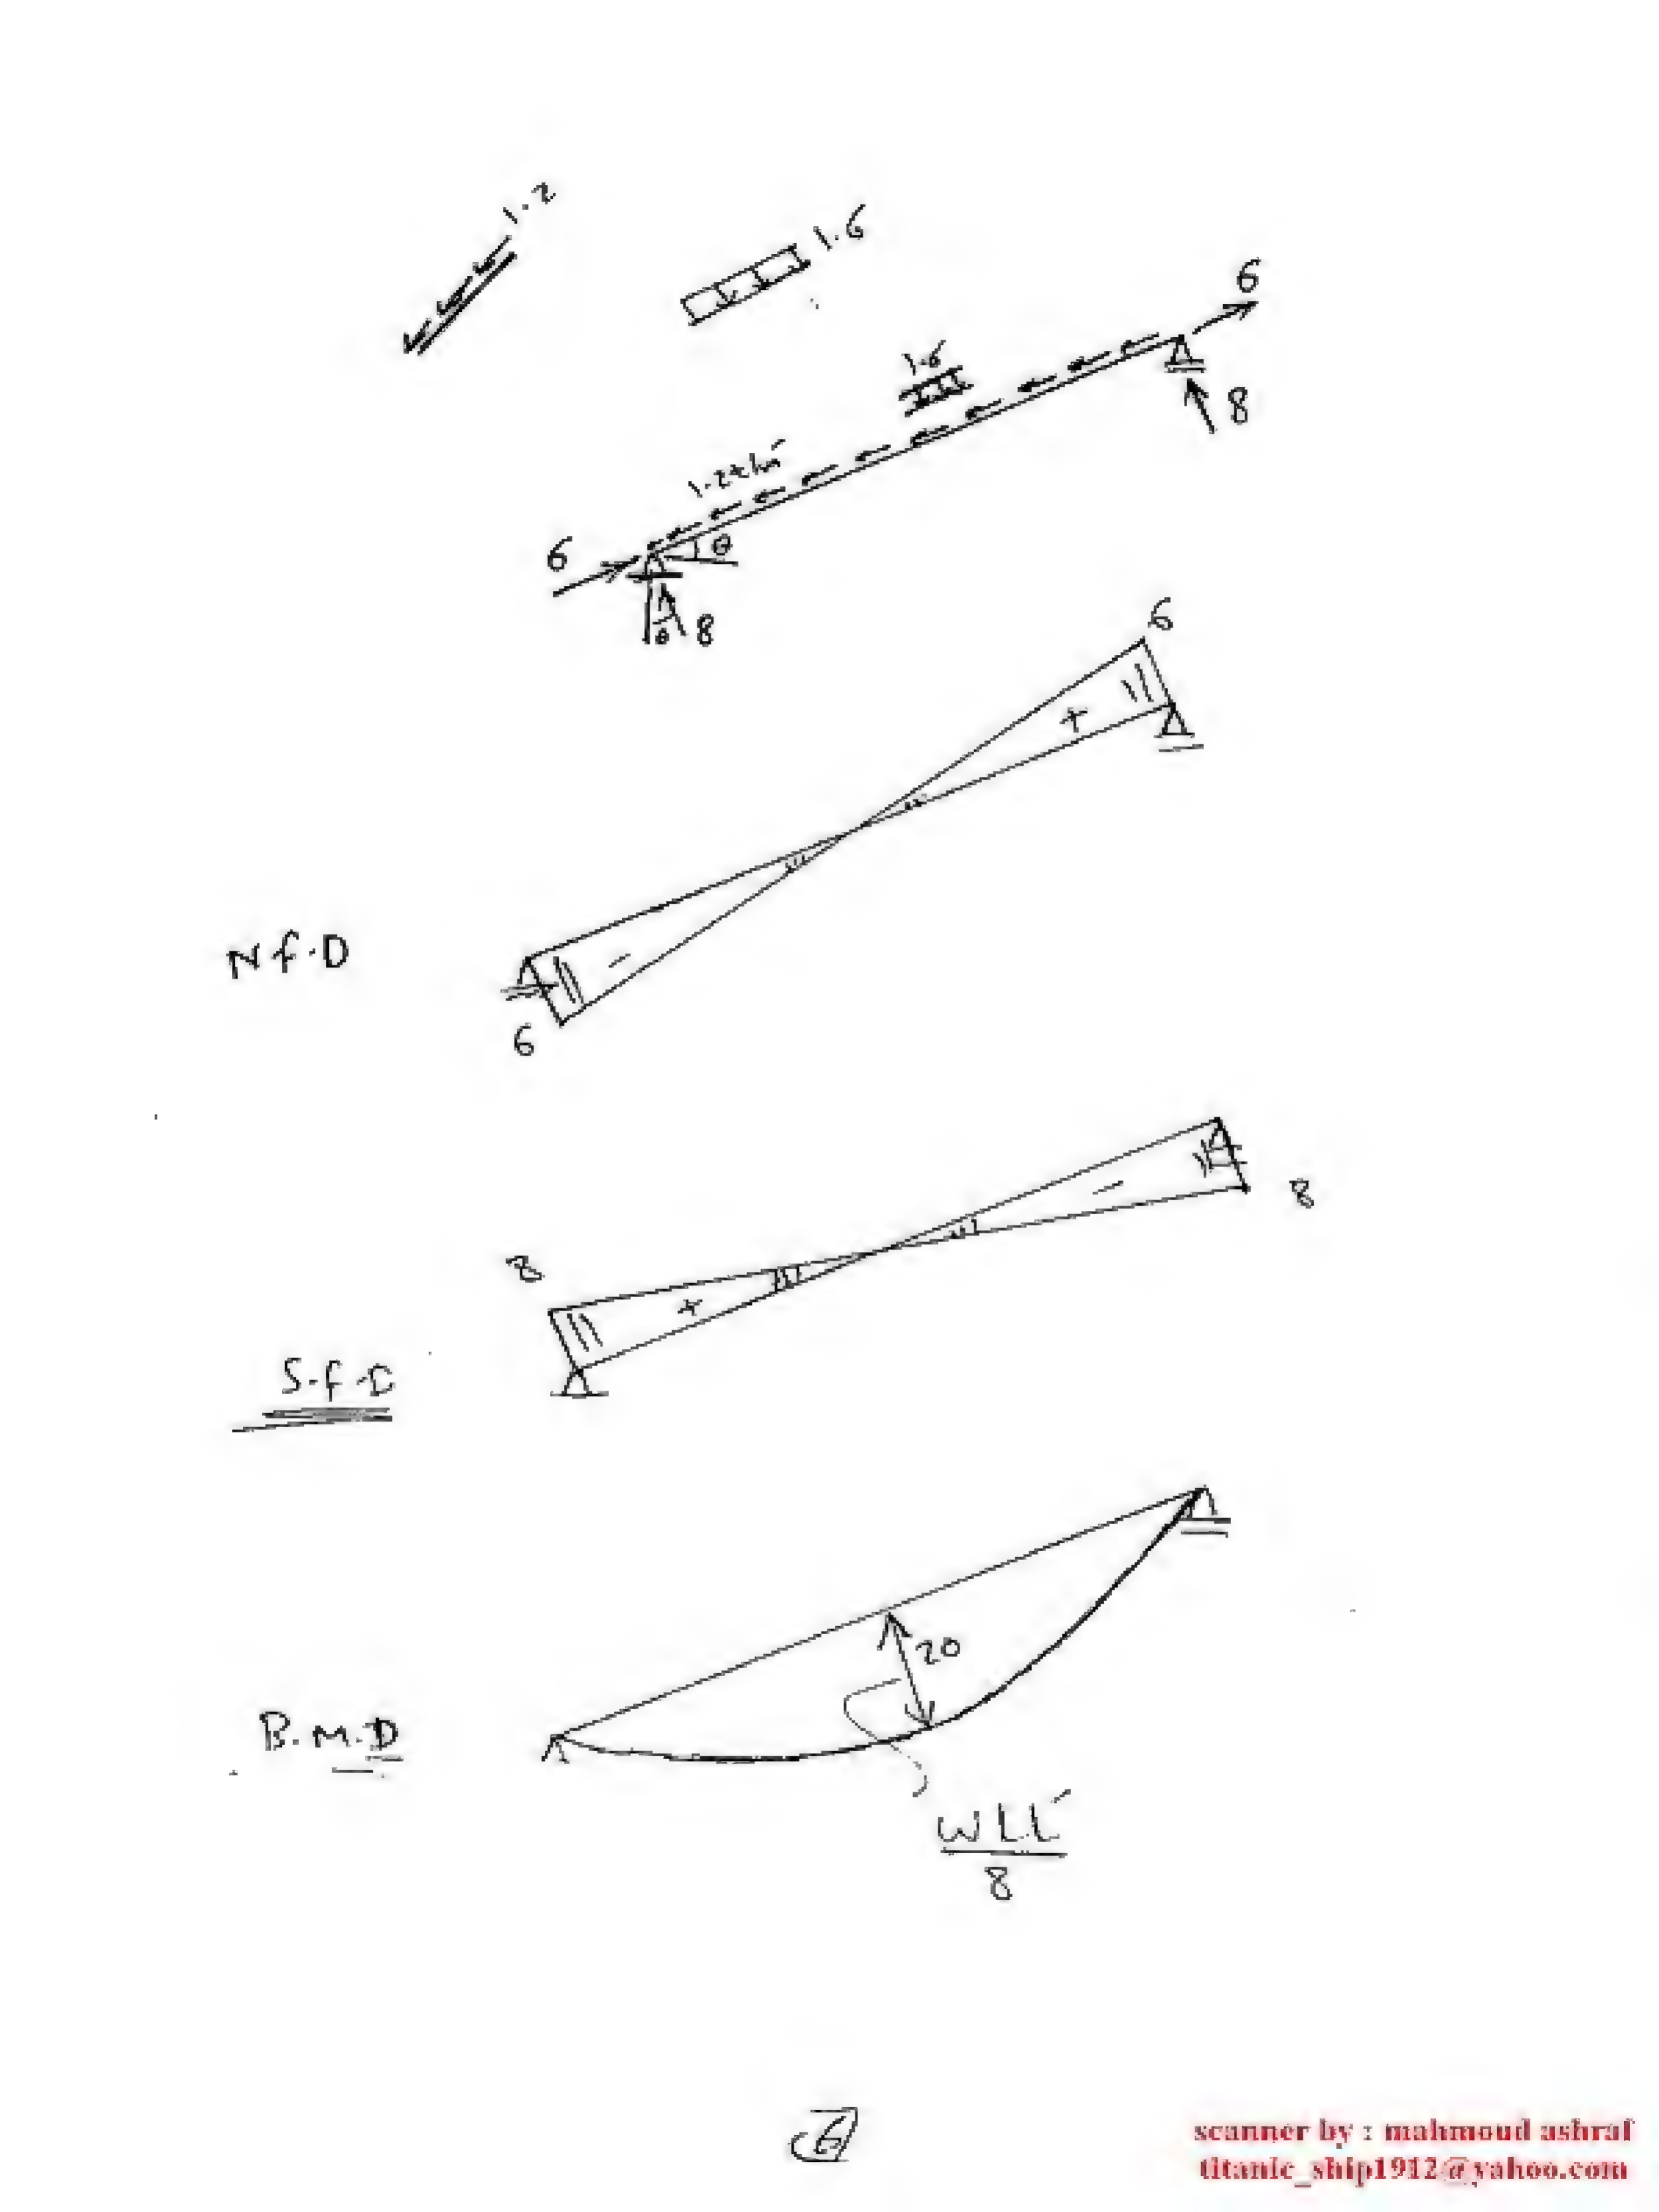 1.2
1.6
6
1.6
8
1.2 t/m'
θ
6
θ
8
6
+
N.F.D
-
6
8
-
8
+
S.F.D
20
B.M.D
WLL'
8
6
scanner by : mahmoud ashraf
titanic_ship1912@yahoo.com